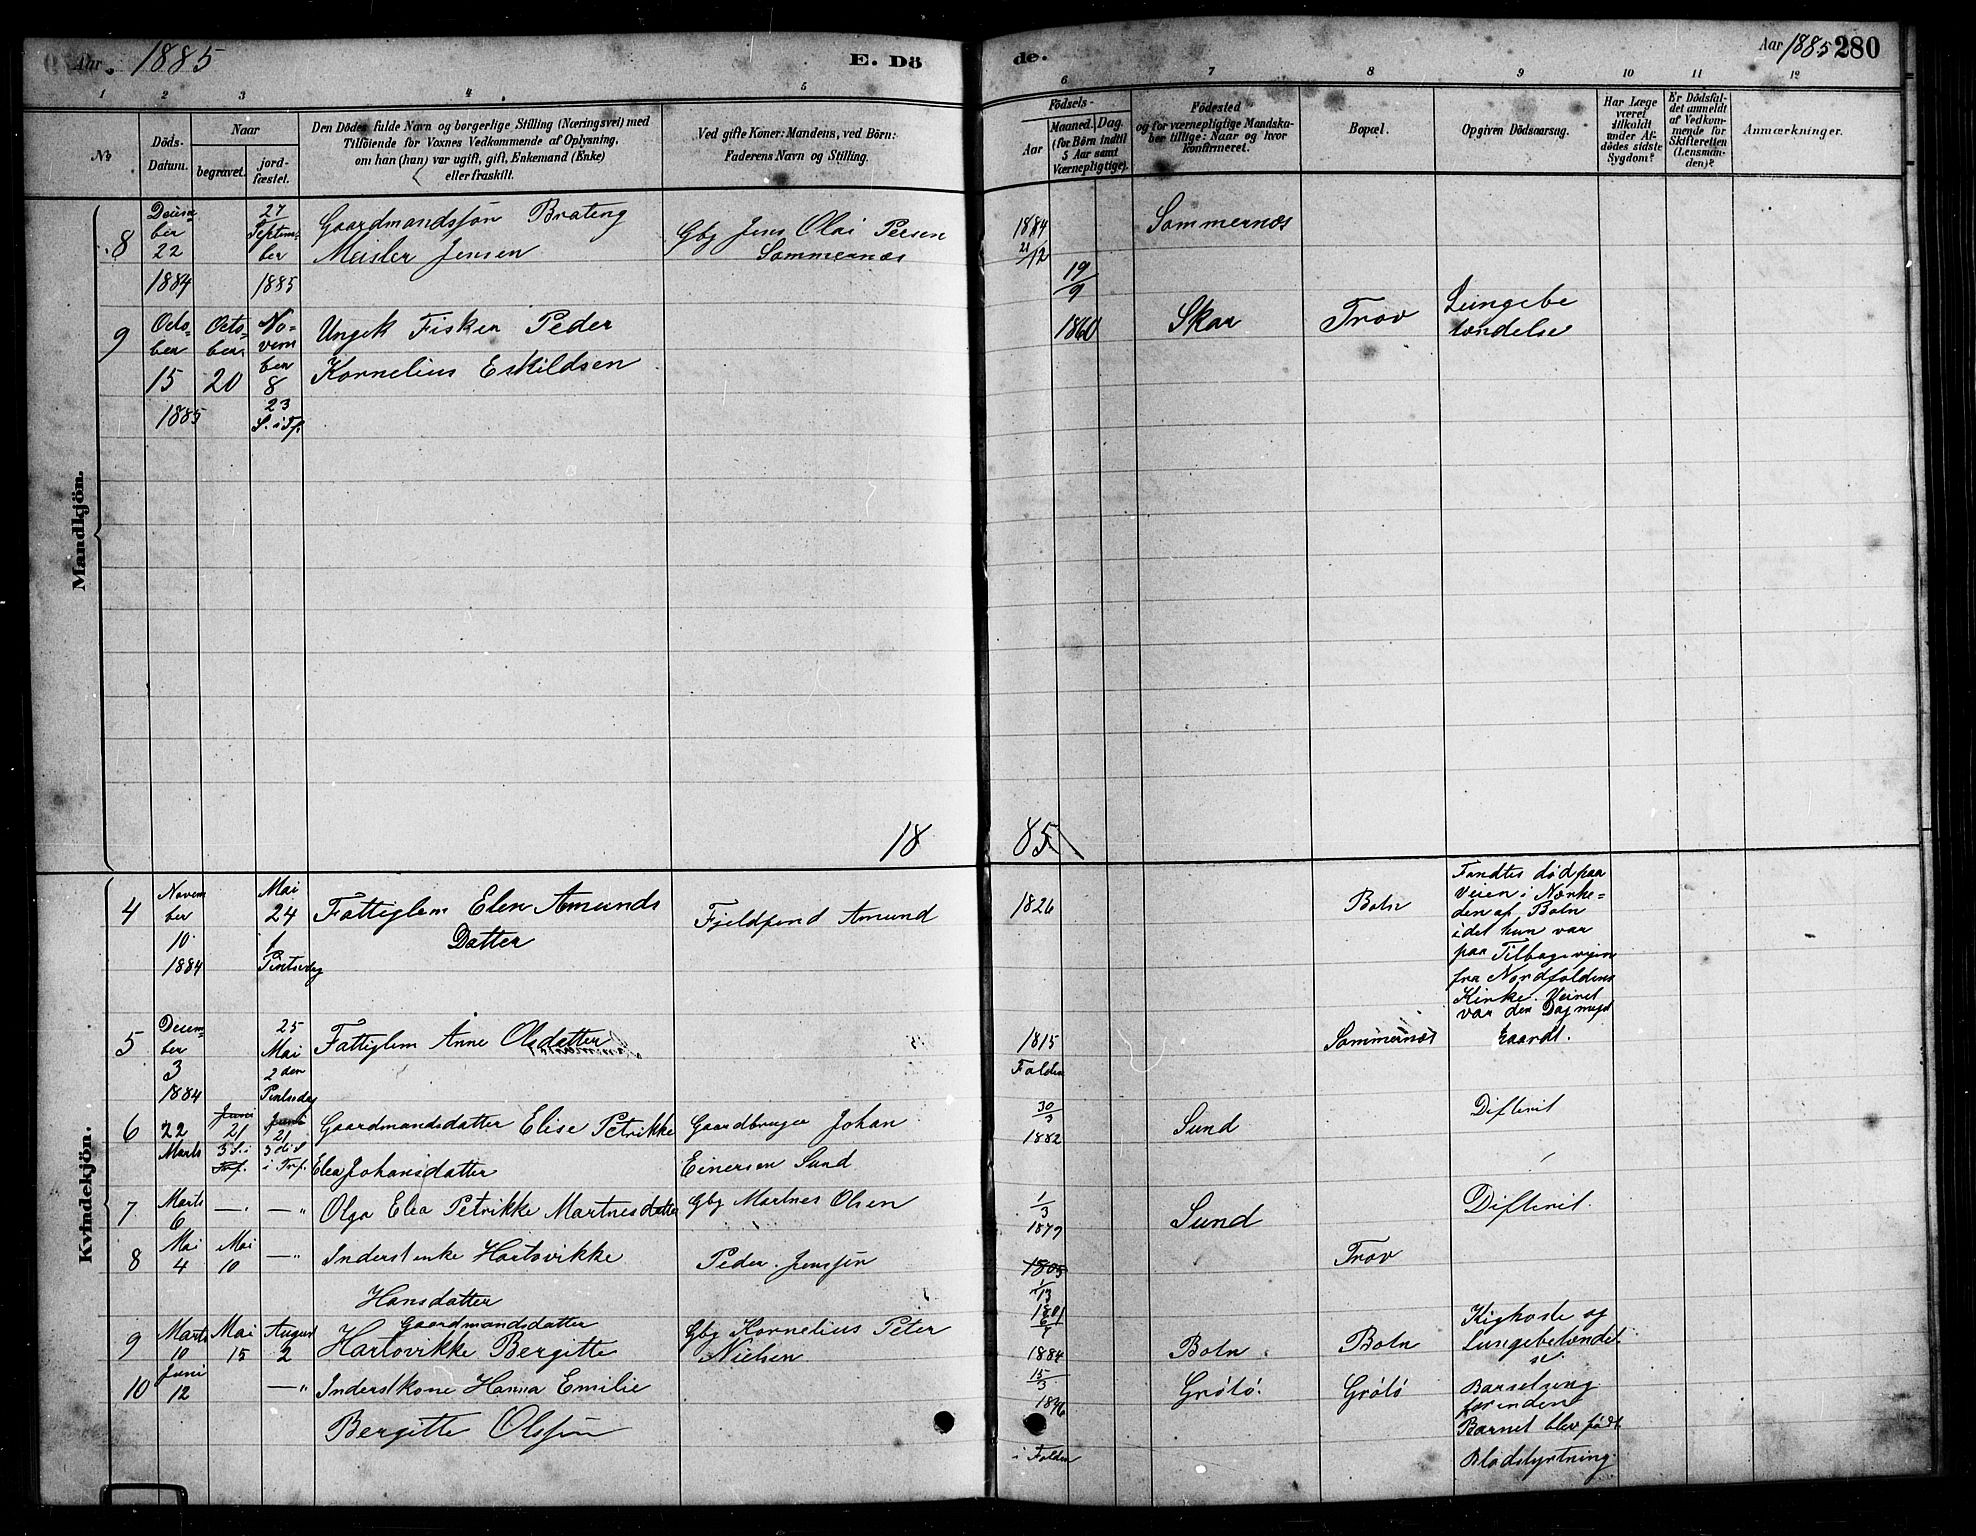 Aar 1885
E. Dö
de.
Aar 1885 280
1 2 3 4 5 6 7 8 9 10 11 12
No
Döds-
Datum.
Naar
begravet.
jord-
fæstet.
Den Dödes fulde Navn og borgerlige Stilling (Næringsvei) med
Tilföiende for Voxnes Vedkommende af Oplysning,
om han (hun) var ugift, gift, Enkemand (Enke)
eller fraskilt.
Ved gifte Koner: Mandens, ved Börn:
Faderens Navn og Stilling.
Födsels-
Aar
Maaned. Dag.
(for Börn indtil
5 Aar samt
Værnepligtige).
Födested
og for værnepligtige Mandska-
ber tillige: Naar og hvor
konfirmeret.
Bopæl.
Opgiven Dödsaarsag.
Har Læge
været
tilkaldt
under Af-
dödes sidste
Sygdom?
Er Dödsfal-
det anmeldt
af Vedkom-
mende for
Skifteretten
(Lensman-
den)?
Anmærkninger.
Mandkjön.
8
Decem
ber
22
1884
27
Septem-
ber
1885
Gaardmandssøn Brateng
Meisler Jensen
Gbg Jens Olai Persen
Sommernæs
1884
21/12
Sommernæs
9
Octo-
ber
15
1885
Octo-
ber
20
No-
vem
ber
8
23
S. i Tf.
Ungk Fisker Peder
Kornelius Eskildsen
19/9
1860
Skar
Trøv
Lungebe
tændelse
18 85
Kvindekjön.
4
Novem
ber
10
1884
Mai
24
1
Pintsedag
Fattiglem Elen Amunds
Datter
Fjeldfend Amund
1826
Botn
Fandtes død paa
Veien i Nærhe-
den af Botn
idet hun var
paa Tilbageveien
fra Nordfoldens
Kirke. Veiret
var den Dag meget
haardt.
5
Decem-
ber
3
1884
25
Mai
2den
Pintsedag
Fattiglem Anne Olsdatter
1815
Folden
Sommernæs
6
22
Marts
Juni
21
3 S. i
Tref.
Juni
21
3 die S
i Tref.
Gaardmandsdatter Elise Petrikke
Elea Johansdatter
Gaardbruger Johan
Einersen Sund
30/3
1882
Sund
Difterit
7
Marts
6
—
—"
Olga Elea Petrikke Martnesdatter
Gbg Martnes Olsen
1/3
1879
Sund
Difterit.
8
Mai
4
Mai
10
—"
Inderstenke Hartvikke
Hansdatter
Peder Jenssøn
1805
1801
Trøv
9
Marts
10
Mai
15
August
2
Gaardmandsdatter
Hartvikke Bergitte
Gbg Kornelius Peter
Nielsen
1884
Botn
Botn
Kighoste og
Lungebetændel
se.
10
Juni
12
—"
Inderstkone Hanna Emilie
Bergitte Olssøn
15/3
1846
i Folden
Grøtø
Grøtø
Barselseng
før inden
Barnet blev født
Blodstyrtning.